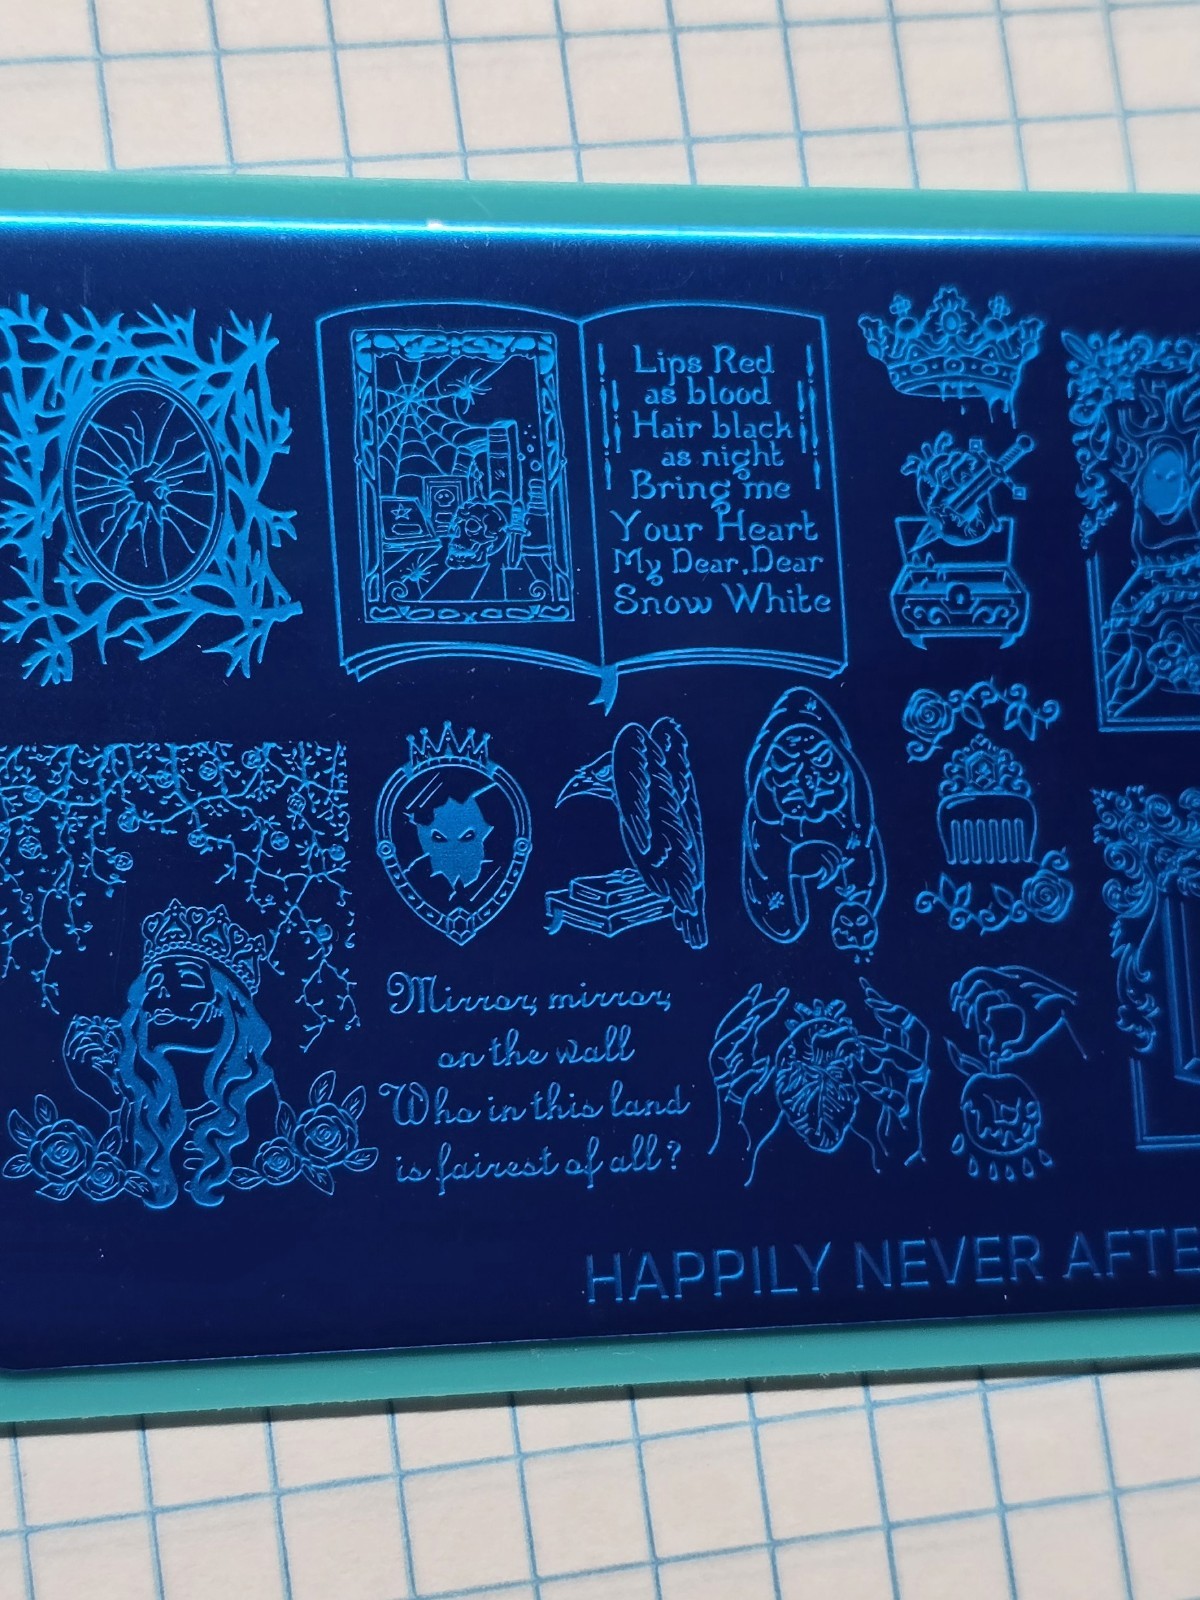 Lips Red
as blood
Hair black
as night
Bring me
Your Heart
My Dear, Dear
Snow White
Mirror, mirror,
on the wall
Who in this land
is fairest of all?
HAPPILY NEVER AFTE